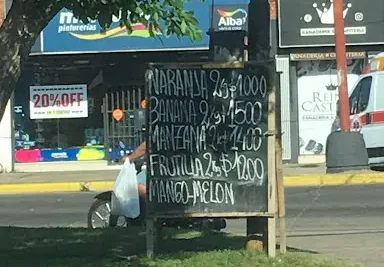 pinturerías
Alba
20%OFF
REI
CAST
NARANJA 2kg $1000
BANANA 2kg $1500
MANZANA 2kg $1400
FRUTILLA 2kg $1200
MANGO-MELON